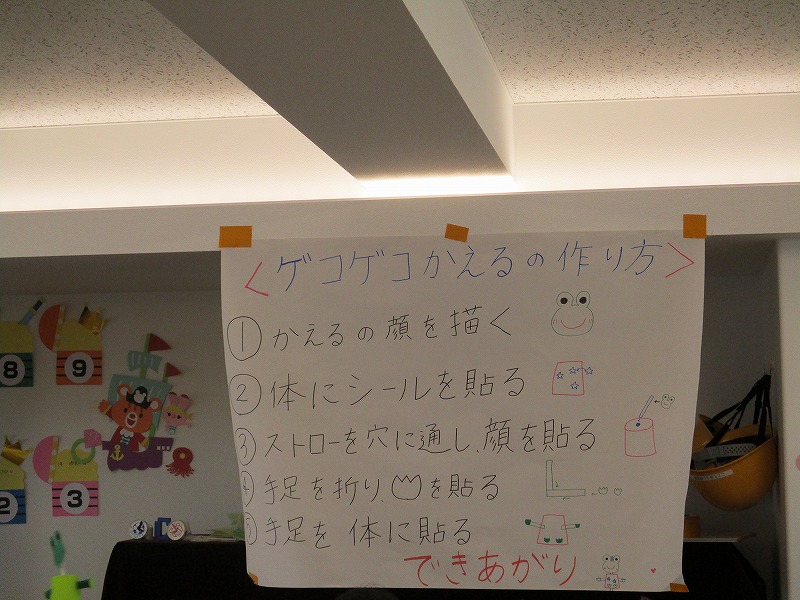 <ゲコゲコかえるの作り方>
①かえるの顔を描く
②体にシールを貼る
③ストローを穴に通し、顔を貼る
④手足を折り、を貼る
⑤手足を体に貼る
できあがり
8
9
2
3